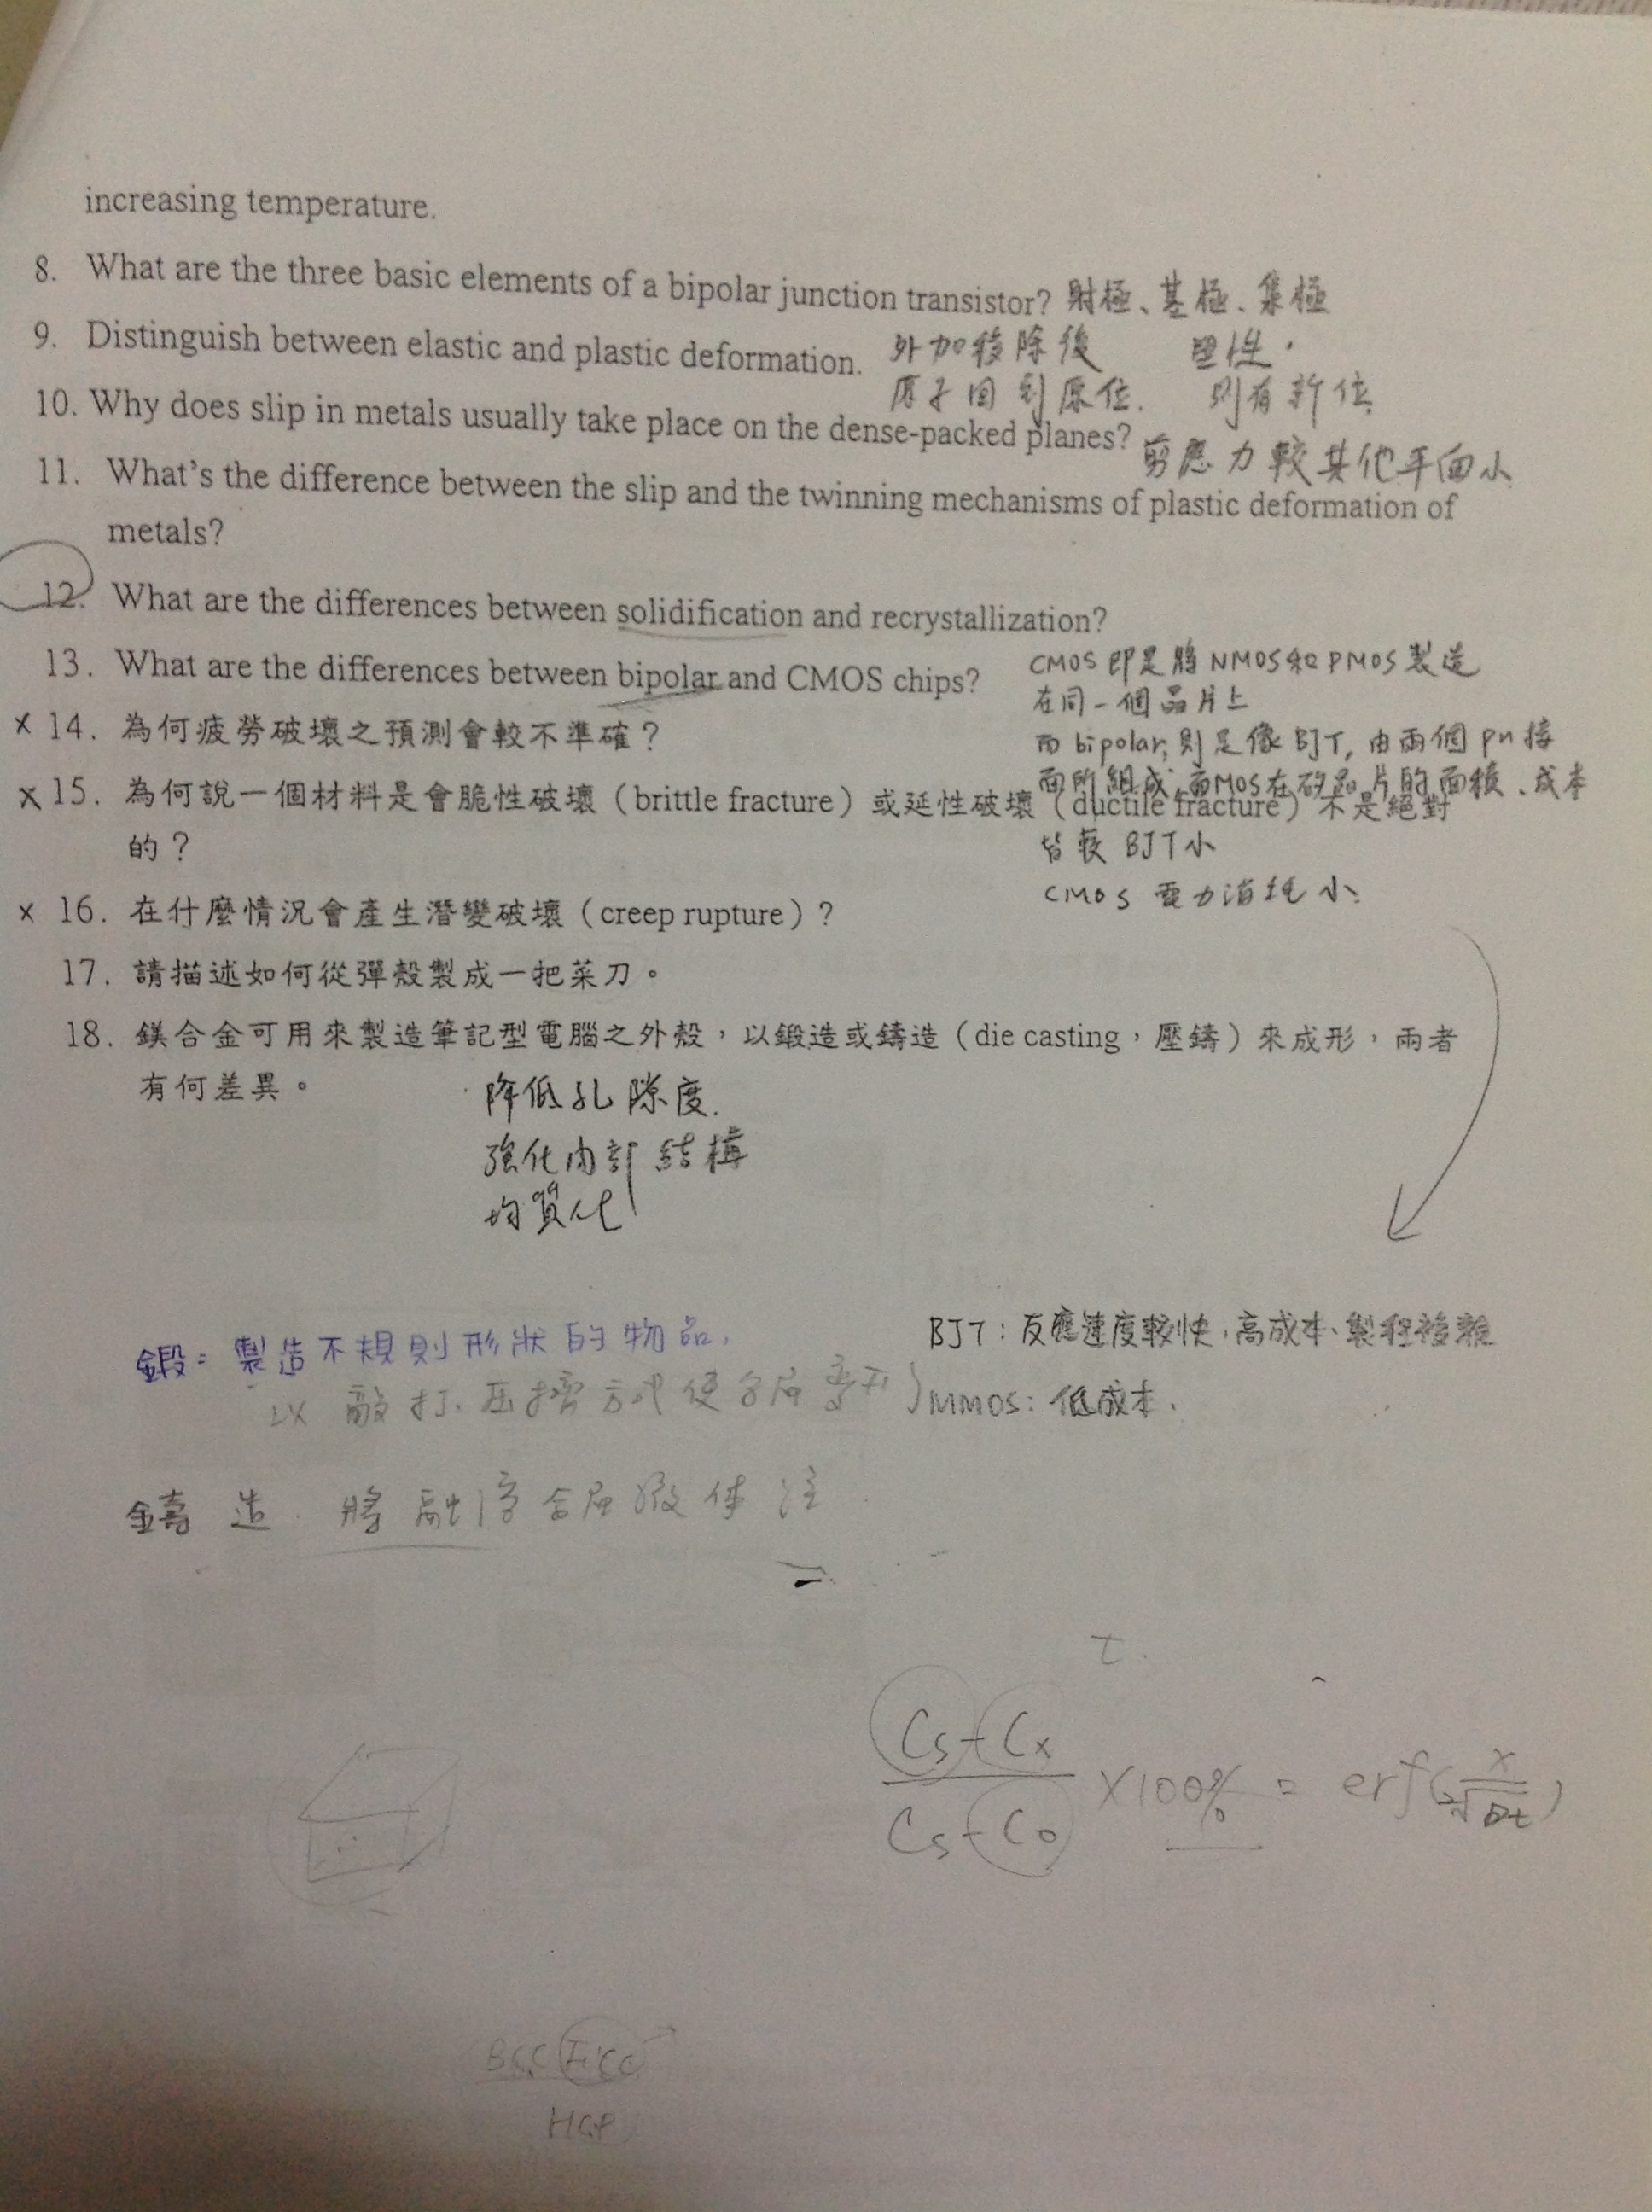 increasing temperature.
8. What are the three basic elements of a bipolar junction transistor? 射極、基極、集極
9. Distinguish between elastic and plastic deformation. 外加移除後 塑性.
原子回到原位. 則有新位
10. Why does slip in metals usually take place on the dense-packed planes?
剪應力較其他平面小
11. What's the difference between the slip and the twinning mechanisms of plastic deformation of
metals?
12. What are the differences between solidification and recrystallization?
13. What are the differences between bipolar and CMOS chips?
CMOS 即是將 NMOS和PMOS製造
在同一個晶片上
而 bipolar, 則是像 BJT, 由兩個 pn 接
面所組成, 而MOS在矽晶片的面積、成本
皆較 BJT小
CMOS 電力消耗小.
x 14. 為何疲勞破壞之預測會較不準確？
x 15. 為何說一個材料是會脆性破壞（brittle fracture）或延性破壞（ductile fracture）不是絕對
的？
x 16. 在什麼情況會產生潛變破壞（creep rupture）？
17. 請描述如何從彈殼製成一把菜刀。
18. 鎂合金可用來製造筆記型電腦之外殼，以鍛造或鑄造（die casting，壓鑄）來成形，兩者
有何差異。
降低孔隙度.
強化內部結構
均質化
鍛: 製造不規則形狀的物品.
以 敲打. 压擠方式使金属
BJT: 反應速度較快, 高成本、製程複雜
MMOS: 低成本.
鑄造 將融溶金属液体注
τ.
Cs-Cx / Cs-Co ×100% = erf(x / 2√Dt)
BCC FCC
HCP